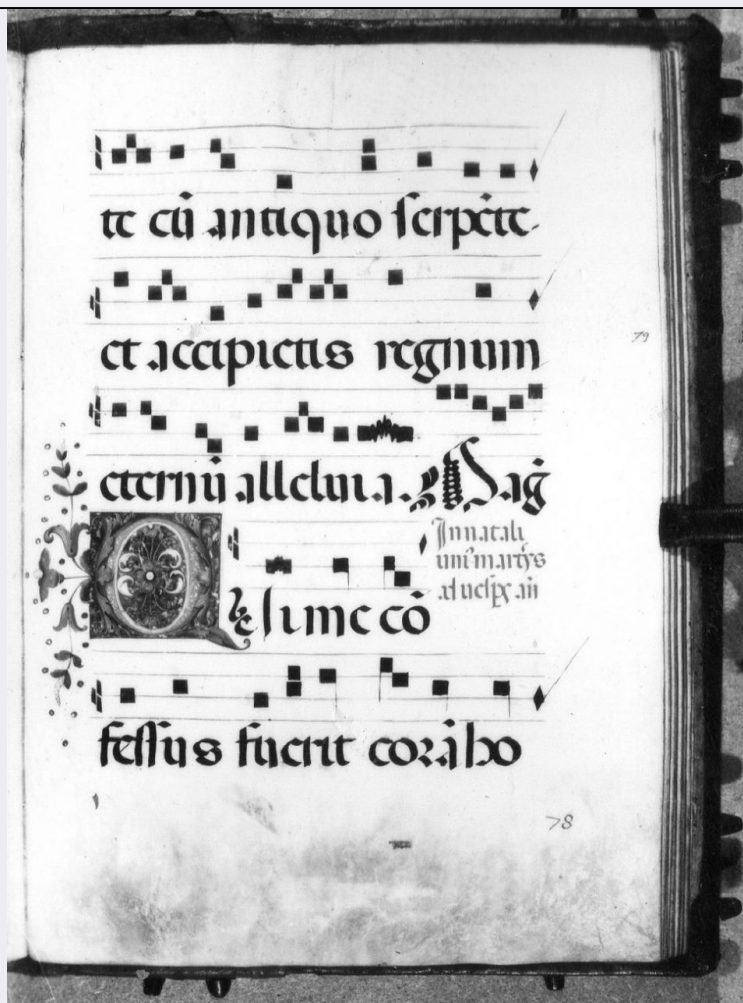 te cū antiquo serpēte
et accipietis regnum
eternū alleluia. Mag̃
Qui me cō
In natali
uni⁹ martỹs
ad uesp̱ añ
fessus fuerit corã ho
79
78